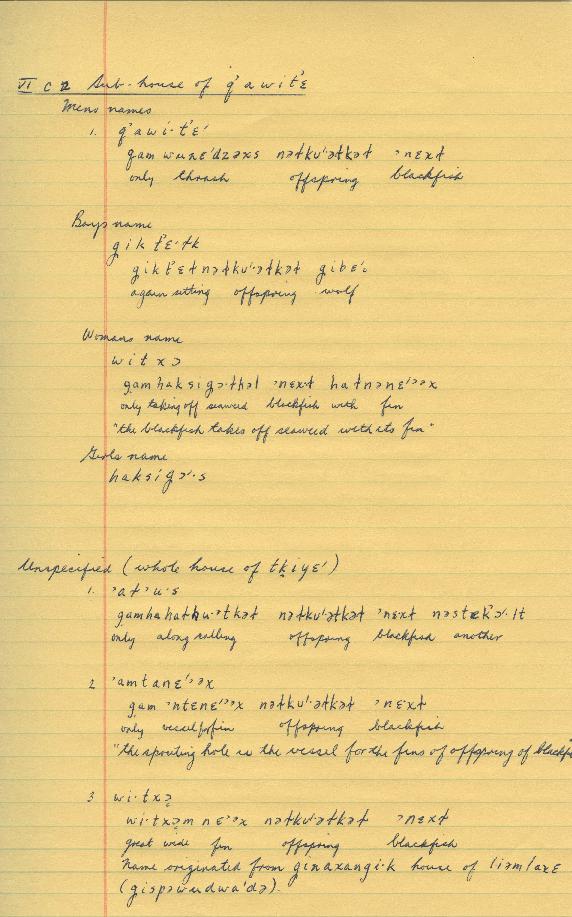 VI c 2 Sub-house of g̓awit̓ɛ
Mens names
1. g̓awi·t̓ɛ'
gam wunɛ'dzəxs nəɬku'·əɬkəɬ ʼnɛxɬ
only thrash offspring blackfish
Boys name
gikt̓ɛ·ɬk
gikt̓ɛɬ nəɬku'·əɬkəɬ gibɛ'·
again sitting offspring wolf
Womans name
witxɔ
gamhaksigɔ·thəl ʼnɛxɬ haɬnənɛ'ʼəx
only taking off seaweed blackfish with fin
"the blackfish takes off seaweed with its fin"
Girls name
haksigɔ'·s
Unspecified (whole house of tk̟iyɛ')
1. ʼaɬʼu·s
gamhahaɬ nəɬku'·əɬkəɬ ʼnɛxɬ
only along rolling offspring blackfish another
2 ʼamtanɛ'ʼəx
gam ʼntɛnɛ'ʼəx nəɬku'·əɬkəɬ ʼnɛxɬ
only vessel for fin offspring blackfish
"the spouting hole is the vessel for the fins of offspring of
3 wi·txə̟
wi·txə̟m nɛ'ʼəx nəɬku'·əɬkəɬ ʼnɛxɬ
great wide fin offspring blackfish
Name originated from ginaxangi·k house of
(gispəwudwa'də).